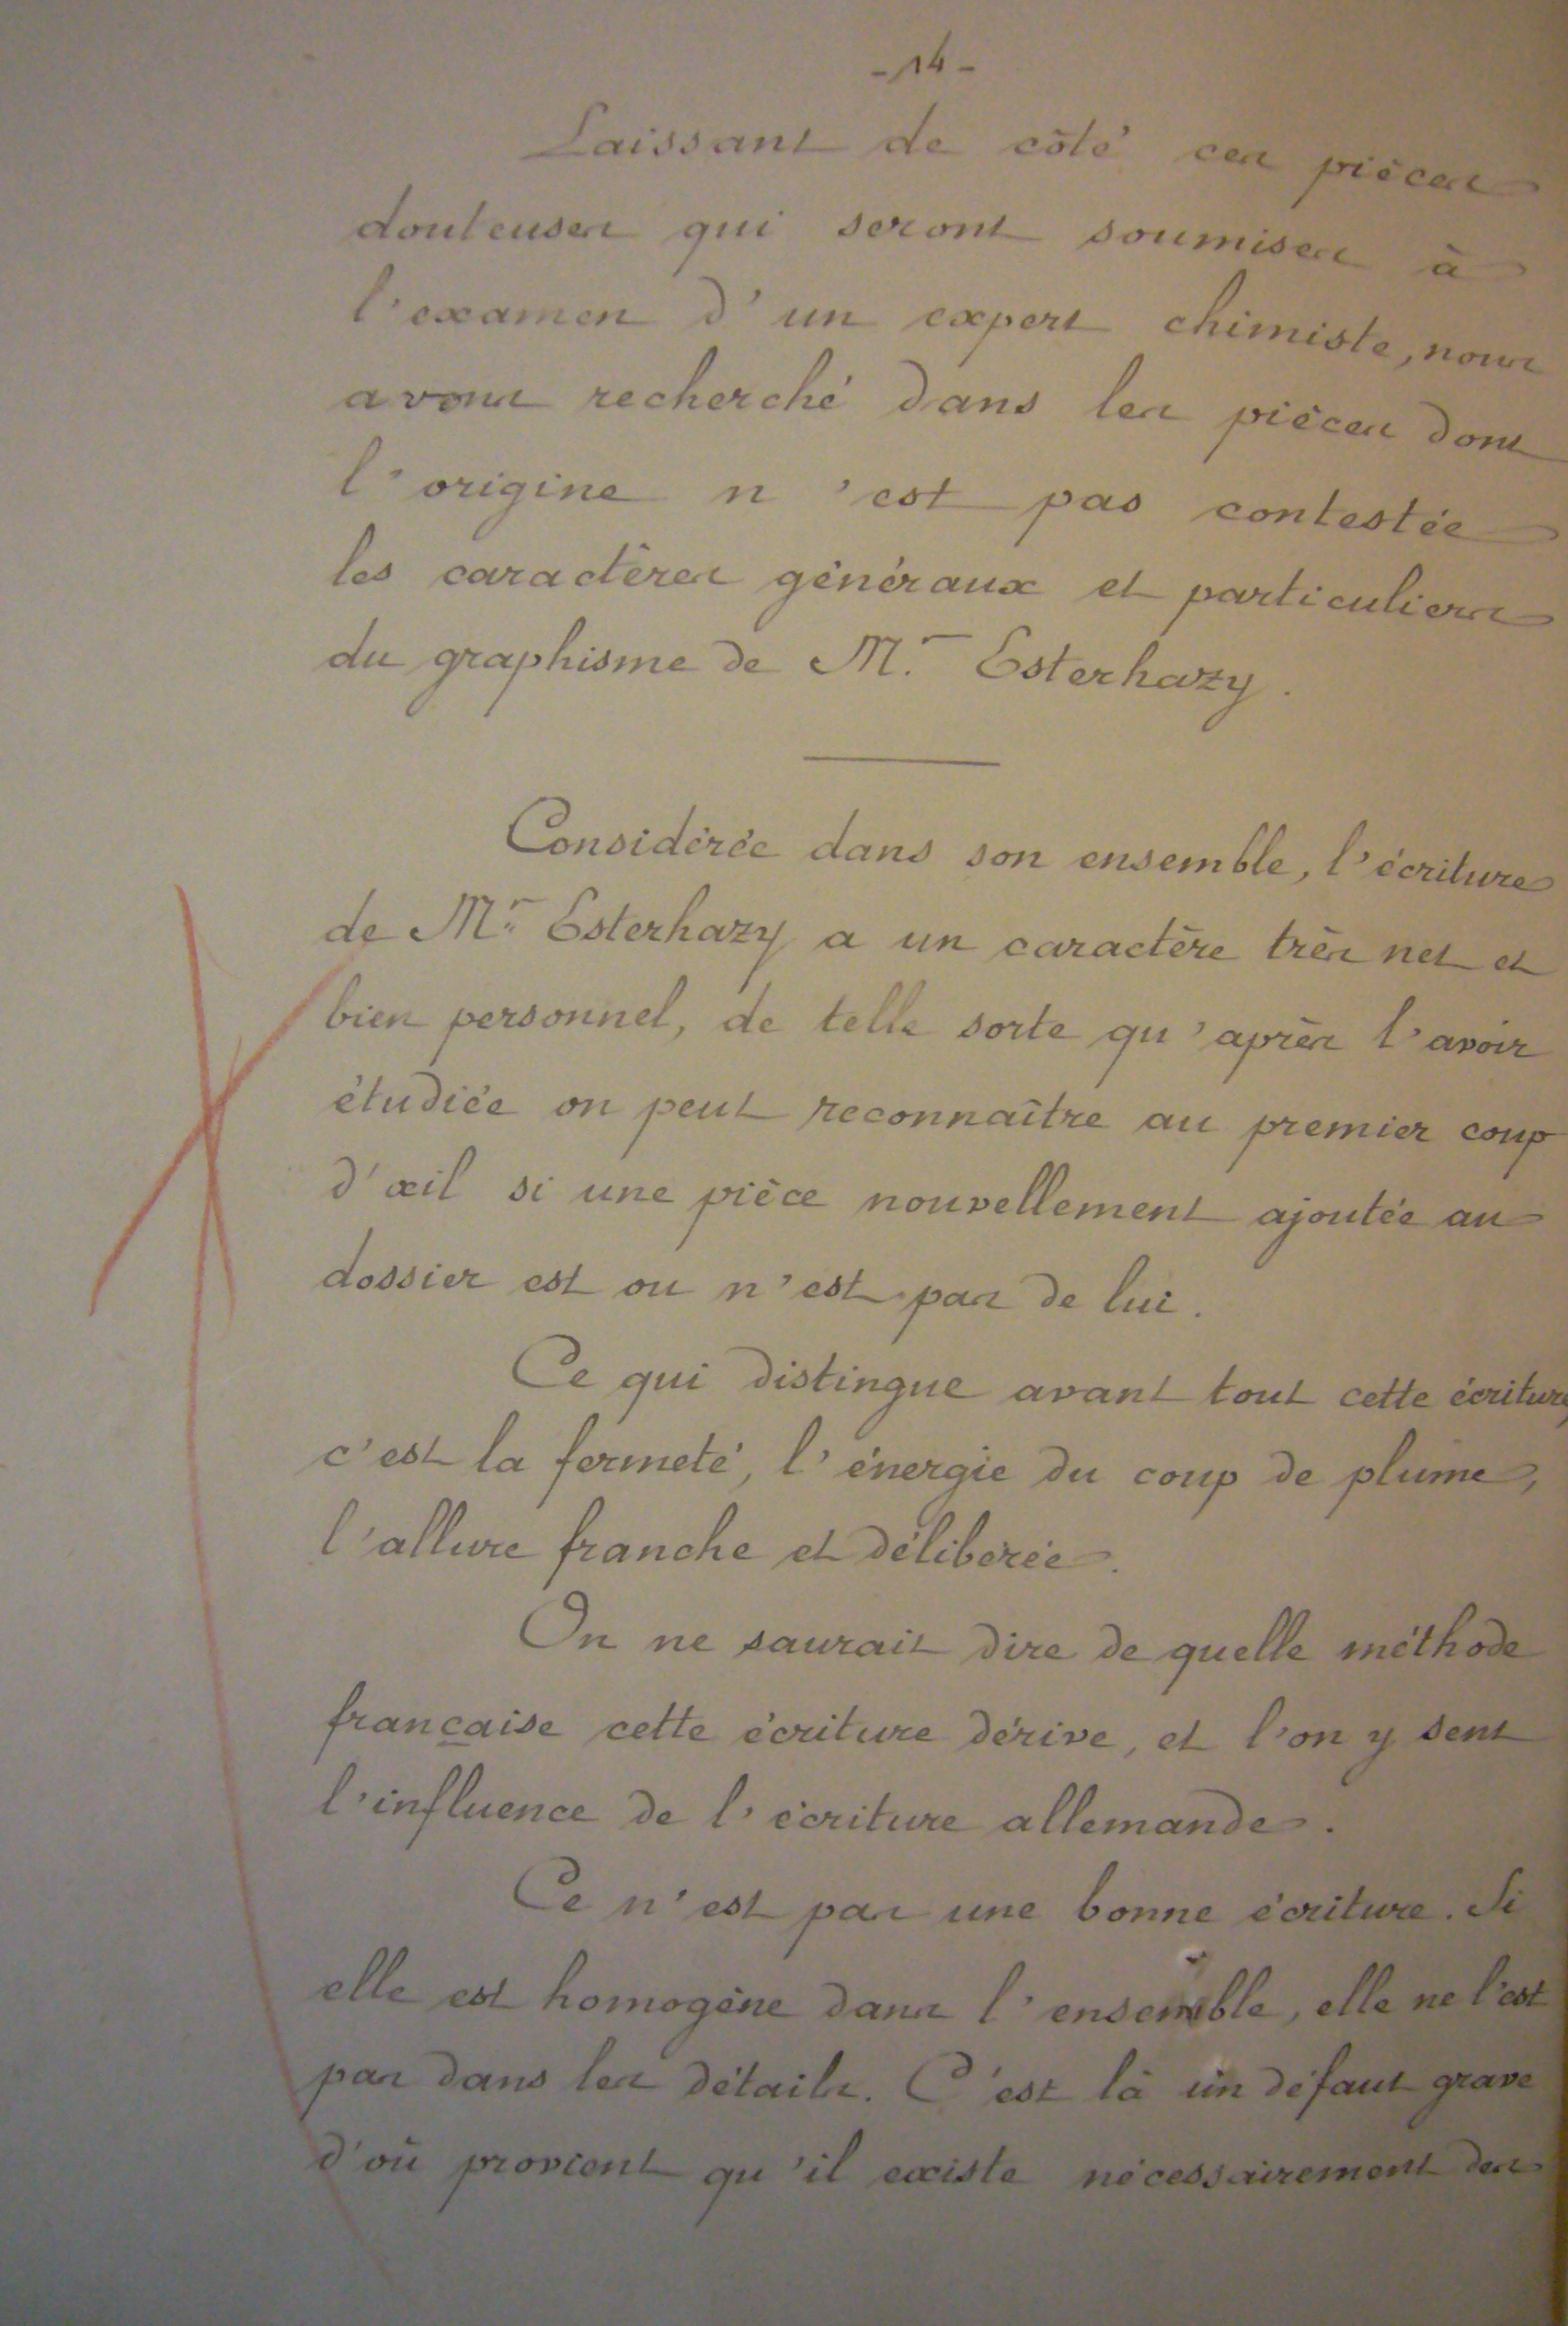 - 14 -
Laissant de côté ces pièces
douteuses qui seront soumises à
l'examen d'un expert chimiste, nous
avons recherché dans les pièces dont
l'origine n'est pas contestée
les caractères généraux et particuliers
du graphisme de Mr Esterhazy.
Considérée dans son ensemble, l'écriture
de Mr Esterhazy a un caractère très net et
bien personnel, de telle sorte qu'après l'avoir
étudiée on peut reconnaître au premier coup
d'œil si une pièce nouvellement ajoutée au
dossier est ou n'est pas de lui.
Ce qui distingue avant tout cette écriture,
c'est la fermeté, l'énergie du coup de plume,
l'allure franche et délibérée.
On ne saurait dire de quelle méthode
française cette écriture dérive, et l'on y sent
l'influence de l'écriture allemande.
Ce n'est pas une bonne écriture. Si
elle est homogène dans l'ensemble, elle ne l'est
pas dans les détails. C'est là un défaut grave
d'où provient qu'il existe nécessairement des